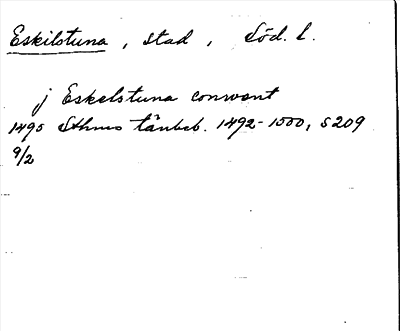 Eskilstuna, stad, Söd. l.
j Eskelstuna conwent
1495 Sthms tänkeb. 1492-1500, s 209
9/2